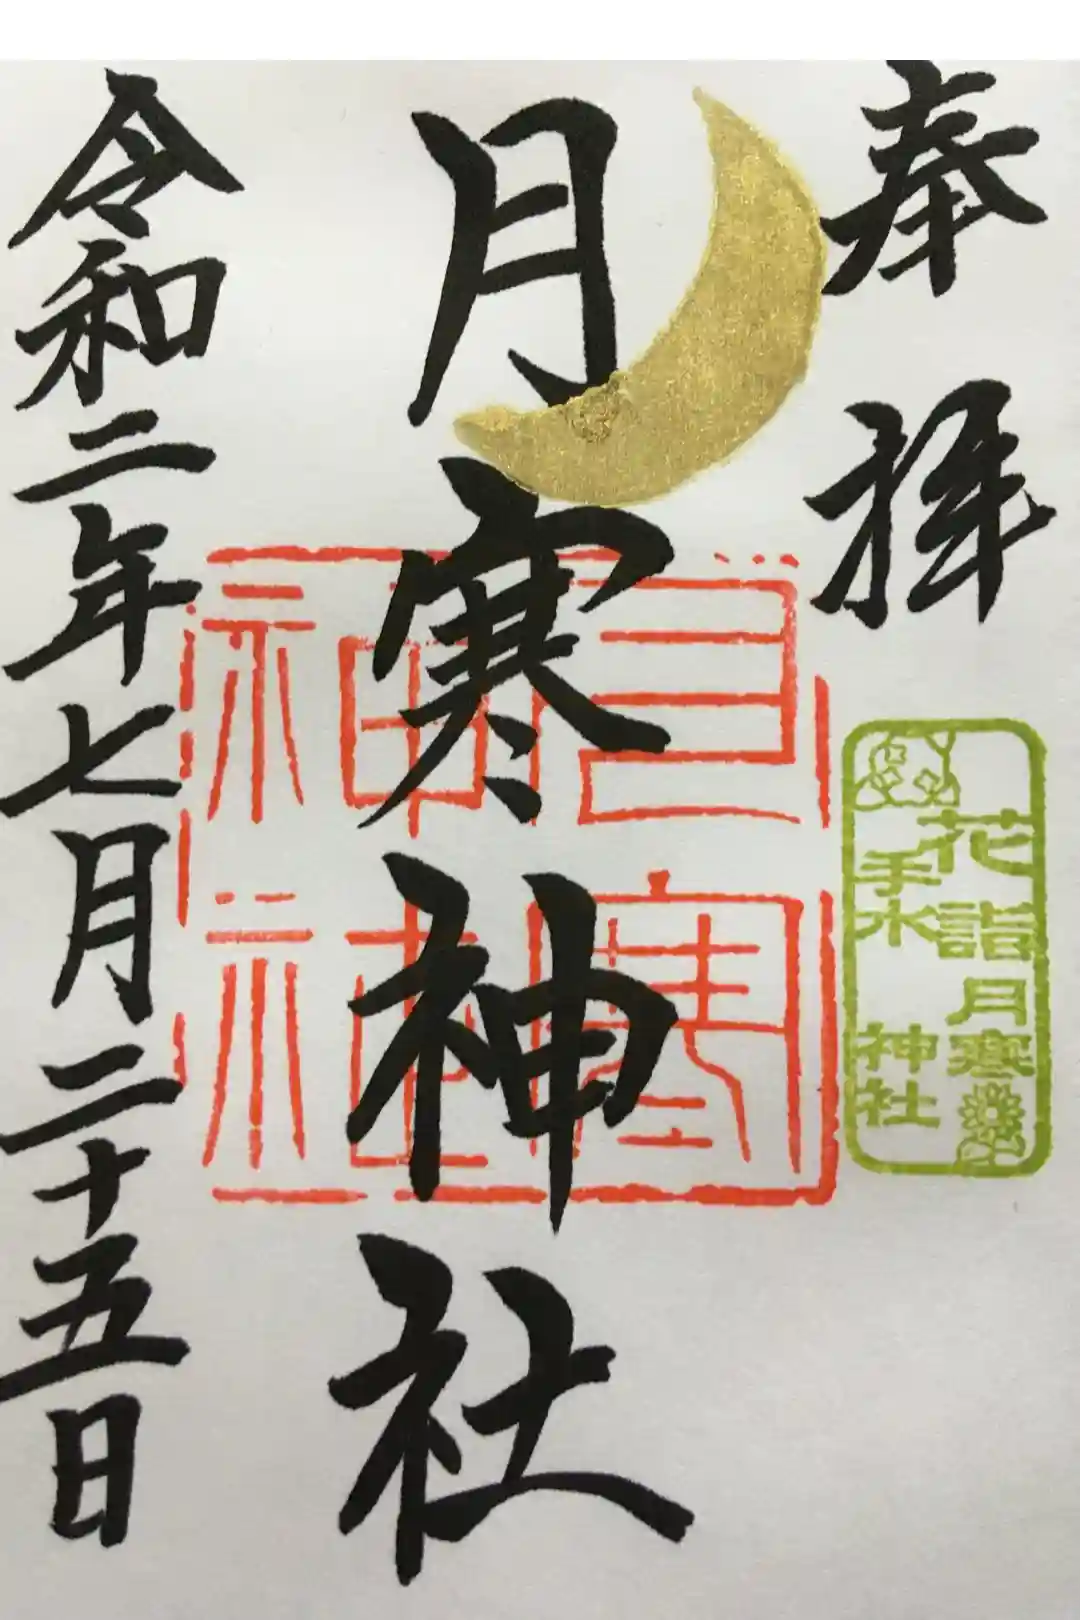 奉拝
月寒神社
令和二年七月二十五日
月寒神社
花詣
手水
月寒
神社